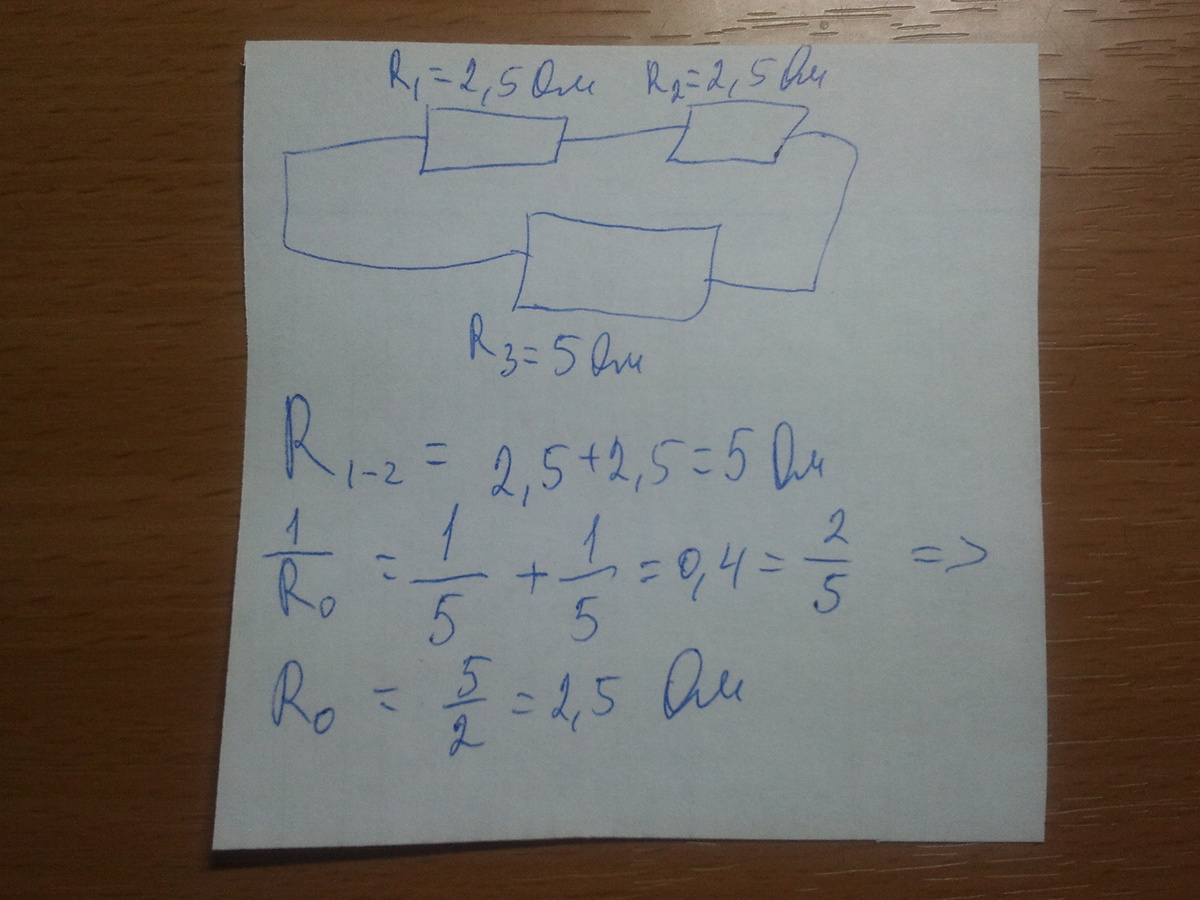 R₁=2,5 Ом R₂=2,5 Ом
R₃=5 Ом
R₁₋₂ = 2,5+2,5=5 Ом
1/R₀ = 1/5 + 1/5 = 0,4 = 2/5 =>
R₀ = 5/2 = 2,5 Ом